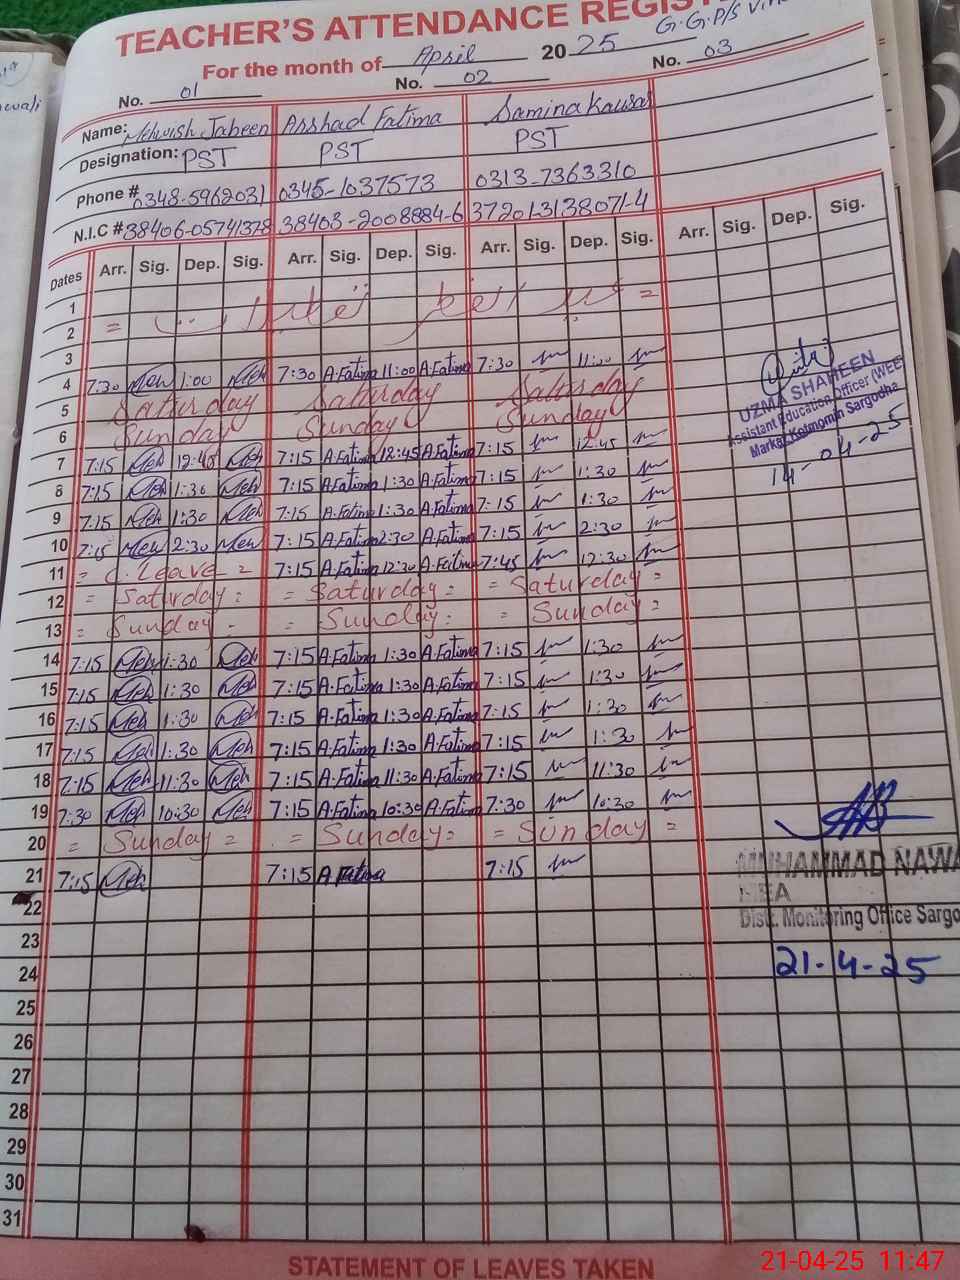 TEACHER'S ATTENDANCE REGIS
G.G.P/S
For the month of April 2025
No. 01 No. 02 No. 03
Name: Mehwish Jabeen Arshad Fatima Samina Kausar
Designation: PST PST PST
Phone # 0348-5962031 0345-1037573 0313-7363310
N.I.C # 38406-05741378 38403-2008884-6 37201-3138071-4
Dates Arr. Sig. Dep. Sig. Arr. Sig. Dep. Sig. Arr. Sig. Dep. Sig. Arr. Sig. Dep. Sig.
1
2
3
4 7:30 Meh 1:00 Meh 7:30 A.Fatima 11:00 A.Fatima 7:30 11:00
5 Saturday Saturday Saturday
6 Sunday Sunday Sunday
7 7:15 Meh 12:45 Meh 7:15 A.Fatima 12:45 A.Fatima 7:15 12:45
8 7:15 Meh 1:30 Meh 7:15 A.Fatima 1:30 A.Fatima 7:15 1:30
9 7:15 Meh 1:30 Meh 7:15 A.Fatima 1:30 A.Fatima 7:15 1:30
10 7:15 Meh 2:30 Meh 7:15 A.Fatima 2:30 A.Fatima 7:15 2:30
11 = C. Leave = 7:15 A.Fatima 12:30 A.Fatima 7:45 12:30
12 = Saturday = = Saturday = = Saturday =
13 = Sunday = = Sunday = = Sunday =
14 7:15 Meh 1:30 Meh 7:15 A.Fatima 1:30 A.Fatima 7:15 1:30
15 7:15 Meh 1:30 Meh 7:15 A.Fatima 1:30 A.Fatima 7:15 1:30
16 7:15 Meh 1:30 Meh 7:15 A.Fatima 1:30 A.Fatima 7:15 1:30
17 7:15 Meh 1:30 Meh 7:15 A.Fatima 1:30 A.Fatima 7:15 1:30
18 7:15 Meh 11:30 Meh 7:15 A.Fatima 11:30 A.Fatima 7:15 11:30
19 7:30 Meh 10:30 Meh 7:15 A.Fatima 10:30 A.Fatima 7:30 10:30
20 = Sunday = = Sunday = = Sunday =
21 7:15 Meh 7:15 A.Fatima 7:15
22
23
24
25
26
27
28
29
30
31
UZMA SHAHEEN
Assistant Education Officer (WEE)
Markaz Kotmomin Sargodha
14-04-25
MUHAMMAD NAWA
MEA
Distt. Monitoring Office Sargo
21-4-25
STATEMENT OF LEAVES TAKEN
21-04-25 11:47